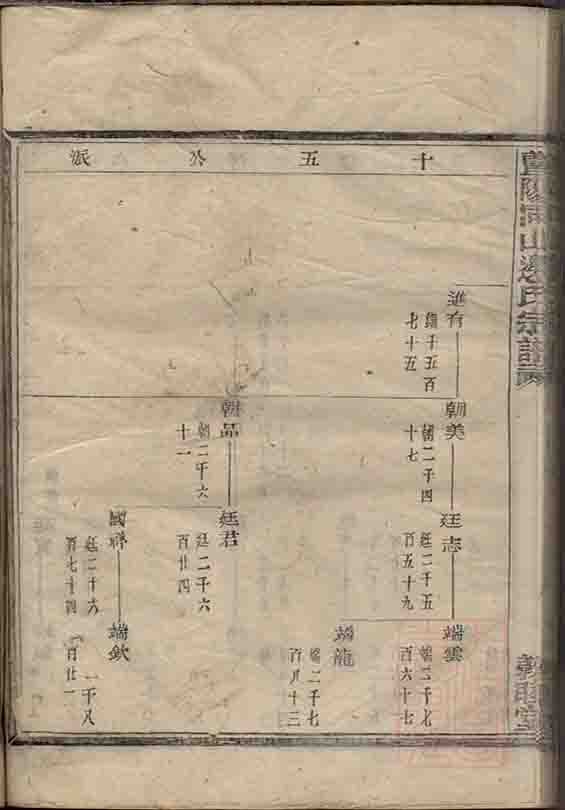 十五公派
進有
儒千五百
七十五
朝美
朝二千四
十七
廷志
廷二千五
百五十九
端雲
端二千七
百六十七
端龍
端二千七
百八十三
朝品
朝二千六
十一
廷君
廷二千六
百廿四
國祥
廷二千六
百七十四
端欽
二千八
百廿一
山邊氏宗譜
敦睦堂